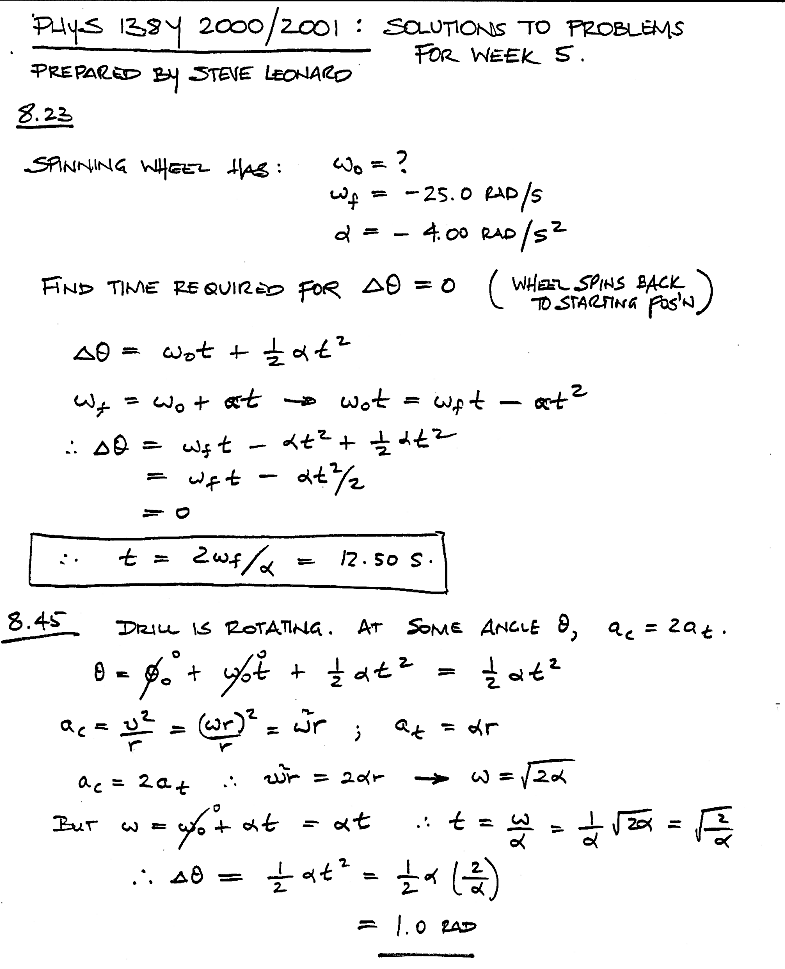 PHYS 138Y 2000/2001 : SOLUTIONS TO PROBLEMS
FOR WEEK 5.
PREPARED BY STEVE LEONARD
8.23
SPINNING WHEEL HAS: ω₀ = ?
ω_f = -25.0 RAD/S
α = - 4.00 RAD/S²
FIND TIME REQUIRED FOR Δθ = 0 (WHEEL SPINS BACK
TO STARTING POS'N)
Δθ = ω₀t + ½ αt²
ω_f = ω₀ + αt → ω₀t = ω_f t - αt²
∴ Δθ = ω_f t - αt² + ½ αt²
= ω_f t - αt²/2
= 0
∴ t = 2ω_f/α = 12.50 S.
8.45 DRILL IS ROTATING. AT SOME ANGLE θ, a_c = 2a_t.
θ = θ₀⁰ + ω₀t⁰ + ½ αt² = ½ αt²
a_c = v²/r = (ωr)²/r = ω²r ; a_t = αr
a_c = 2a_t ∴ ω²r = 2αr → ω = √2α
BUT ω = ω₀⁰ + αt = αt ∴ t = ω/α = 1/α √2α = √2/α
∴ Δθ = ½ αt² = ½ α (2/α)
= 1.0 RAD